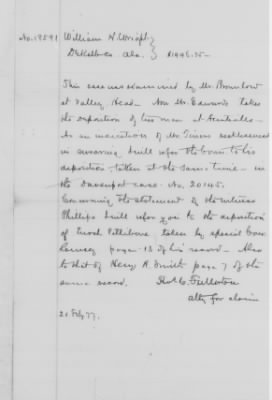 No. 19591 William N. Wright }
DeKalb co. Ala. } $1946.25-
This case was examined by Mr. Brownlow
at Valley Head - Now Mr. Edwards takes
the deposition of two men at
As an indication of Mr. recklessness
in swearing I will refer the to his
deposition taken at the same time - in
the Davenport case No. 20145.
Concerning the statement of the witness
Phillips I will refer you to the deposition
of Enoch taken by special Com
Ramsey page - 13 of his record - Also
to that of Henry A. Smith page 7 of the
same record. Fullerton
atty for claim
21 Feby 77.